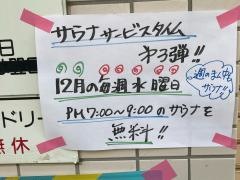 サウナサービスタイム
第3弾!!
12月の毎週水曜日
週のまん中
サウナ!!
PM 7:00~9:00のサウナを
無料!!
日
ドリー
無休